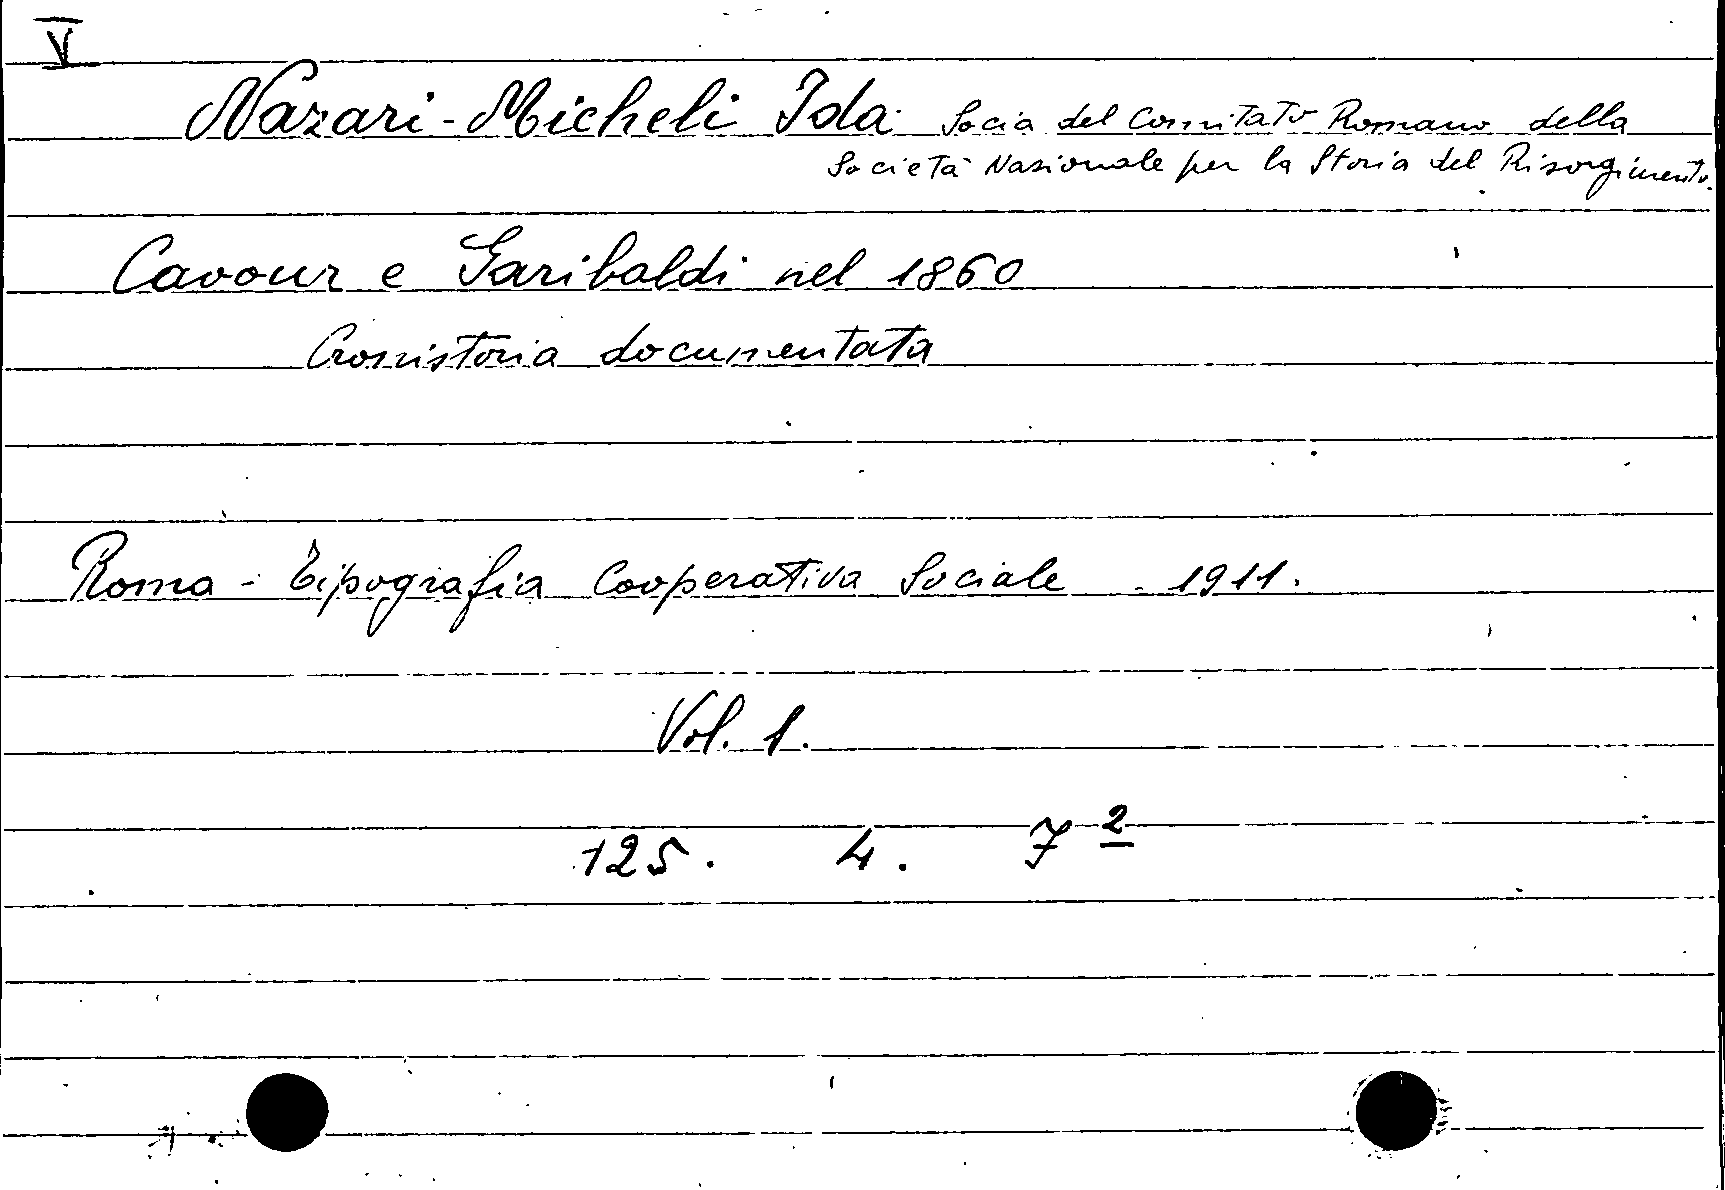 V
Nazari-Micheli Ida Socia del Comitato Romano della
Società Nazionale per la Storia del Risorgimento.
Cavour e Garibaldi nel 1860
Cronistoria documentata
Roma - Tipografia Cooperativa Sociale - 1911.
Vol. 1.
125. 4. 7 2